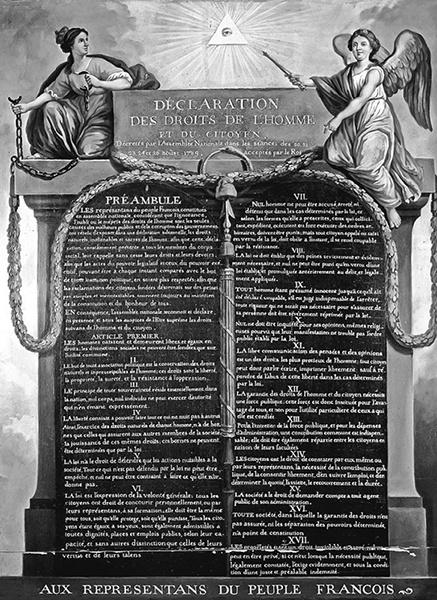 DÉCLARATION
DES DROITS DE L'HOMME
ET DU CITOYEN,
Décretés par l'Assemblée Nationale dans les séances des 20, 21
23, 24 et 26 août 1789, acceptés par le Roi
PRÉAMBULE
LES représentans du peuple François, constitués
en assemblée nationale, considérant que l'ignorance,
l'oubli ou le mépris des droits de l'homme sont les seules
causes des malheurs publics et de la corruption des gouvernemens
ont résolu d'exposer, dans une déclaration solemnelle, les droits
naturels, inaliénables et sacrés de l'homme; afin que cette décla-
ration, constamment présente a tous les membres du corps
social, leur rappelle sans cesse leurs droits et leurs devoirs;
afin que les actes du pouvoir législatif et ceux du pouvoir exé-
cutif, pouvant être a chaque instant comparés avec le but
de toute institution politique, en soient plus respectés; afin que
les réclamations des citoyens, fondées désormais sur des princi-
pes simples et incontestables, tournent toujours au maintien
de la constitution et du bonheur de tous.
EN conséquence, l'assemblée nationale reconnoît et déclare
en présence et sous les auspices de l'Être suprême les droits
suivans de l'homme et du citoyen.
ARTICLE PREMIER.
LES hommes naissent et demeurent libres et égaux en
droits; les distinctions sociales ne peuvent être fondées que sur
l'utilité commune.
II.
LE but de toute association politique est la conservation des droits
naturels et imprescriptibles de l'homme; ces droits sont la liberté,
la propriété, la sureté, et la résistance à l'oppression.
III.
LE principe de toute souveraineté réside essentiellement dans
la nation, nul corps, nul individu ne peut exercer d'autorité
qui n'en émane expressement.
IV.
LA liberté consiste a pouvoir faire tout ce qui ne nuit pas à autrui
Ainsi, l'exercice des droits naturels de chaque homme, n'a de bor-
nes que celles qui assurent aux autres membres de la société
la jouissance de ces mêmes droits; ces bornes ne peuvent
être déterminées que par la loi.
V.
LA loi n'a le droit de défendre que les actions nuisibles à la
société. Tout ce qui n'est pas défendu par la loi ne peut être
empêché, et nul ne peut être contraint à faire ce qu'elle n'or-
donne pas.
VI.
LA loi est l'expression de la volonté générale; tous les
citoyens ont droit de concourir personnellement, ou par
leurs représentans, à sa formation; elle doit être la même
pour tous, soit qu'elle protege, soit qu'elle punisse. Tous les cito-
yens étant égaux à ses yeux, sont également admissibles à
toutes dignités, places et emplois publics, selon leur ca-
pacité, et sans autres distinction que celles de leurs
vertus et de leurs talens.
VII.
NUL homme ne peut être accusé, arreté, ni
détenu que dans les cas déterminés par la loi, et
selon les formes qu'elle a prescrites, ceux qui sollici-
tent, expédient, exécutent ou font exécuter des ordres ar-
bitraires, doivent être punis; mais tout citoyen appelé ou saisi
en vertu de la loi, doit obéir à l'instant, il se rend coupable
par la résistance.
VIII.
LA loi ne doit établir que des peines strictement et évidem-
ment nécessaires, et nul ne peut être puni qu'en vertu d'une
loi établie et promulguée antérieurement au délit, et légale-
ment appliquée.
IX.
TOUT homme étant présumé innocent jusqu'à ce qu'il ait
été déclaré coupable, s'il est jugé indispensable de l'arrêter,
toute rigueur qui ne serait pas nécessaire pour s'assurer de
sa personne doit être sévèrement réprimée par la loi.
X.
NUL ne doit être inquiété pour ses opinions, mêmes religi-
euses pourvu que leur manifestation ne trouble pas l'ordre
public établi par la loi.
XI.
LA libre communication des pensées et des opinions
est un des droits les plus precieux de l'homme; tout citoyen
peut donc parler écrire, imprimer librement; sauf à ré-
pondre de l'abus de cette liberté dans les cas déterminés
par la loi.
XII.
LA garantie des droits de l'homme et du citoyen nécessite
une force publique; cette force est donc instituée pour l'avan-
tage de tous, et non pour l'utilité particuliere de ceux a qui
elle est confiée.
XIII.
POUR l'entretien de la force publique, et pour les dépenses
d'administration, une contribution commune est indispen-
sable; elle doit être également répartie entre les citoyens en
raison de leurs facultés.
XIV.
LES citoyens ont le droit de constater par eux même ou
par leurs représentans, la nécessité de la contribution pub-
lique, de la consentir librement, d'en suivre l'emploi, et d'en
déterminer la quotité, l'assiette, le recouvrement et la durée.
XV.
LA société a le droit de demander compte a tout agent
public de son administration.
XVI.
TOUTE société, dans laquelle la garantie des droits n'est
pas assurée, ni les séparation des pouvoirs déterminée,
n'a point de constitution.
XVII.
LES propriétés étant un droit inviolable et sacré, nul ne
peut en être privé, si ce n'est lorsque la nécessité publique,
légalement constatée, l'exige évidemment, et sous la condi-
tion d'une juste et préalable indemnité.
AUX REPRESENTANS DU PEUPLE FRANCOIS